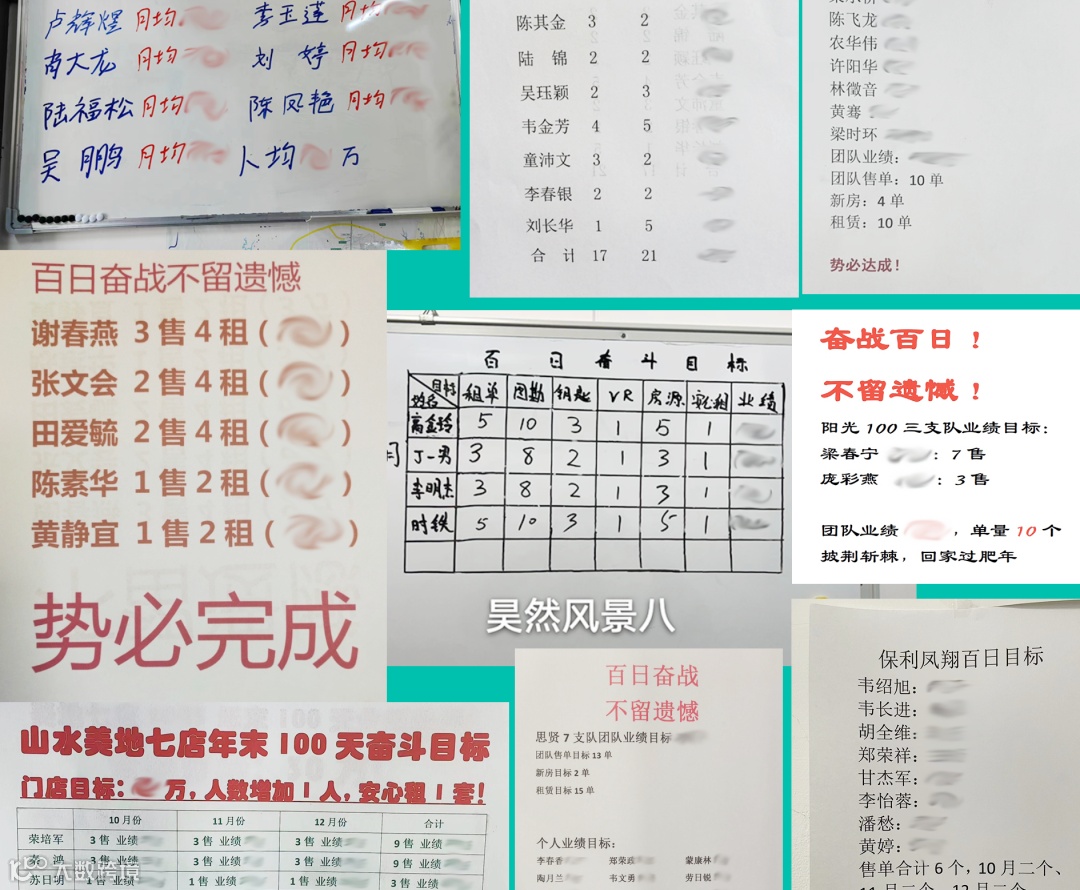 卢辉煜 月均 李玉莲 月均
肖大龙 月均 刘婷 月均
陆福松 月均 陈凤艳 月均
吴鹏 月均 人均 万
陈其金 3 2
陆 锦 2 2
吴珏颖 2 3
韦金芳 4 5
童沛文 3 2
李春银 2 2
刘长华 1 5
合 计 17 21
陈飞龙
农华伟
许阳华
林微音
黄骞
梁时环
团队业绩：
团队售单：10 单
新房：4 单
租赁：10 单
势必达成！
百日奋战不留遗憾
谢春燕 3售4租（ ）
张文会 2售4租（ ）
田爱毓 2售4租（ ）
陈素华 1售2租（ ）
黄静宜 1售2租（ ）
势必完成
百日奋斗目标
目标 姓名 租单 图勘 钥匙 VR 房源 业绩
高金玲 5 10 3 1 5 1
丁一男 3 8 2 1 3 1
李明杰 3 8 2 1 3 1
时铁 5 10 3 1 5 1
昊然风景八
奋战百日！
不留遗憾！
阳光 100 三支队业绩目标：
梁春宁 ：7 售
庞彩燕 ：3 售
团队业绩 ，单量 10 个
披荆斩棘，回家过肥年
山水美地七店年末 100 天奋斗目标
门店目标： 万，人数增加 1 人，安心租 1 套！
10 月份 11 月份 12 月份 合计
荣培军 3 售 业绩 3 售 业绩 3 售 业绩 9 售 业绩
鸿 3 售 业绩 3 售 业绩 3 售 业绩 9 售 业绩
苏日明 1 售 业绩 1 售 业绩 1 售 业绩 3 售 业绩
大数跨境
百日奋战
不留遗憾
思贤 7 支队团队业绩目标
团队售单目标 13 单
新房目标 2 单
租赁目标 15 单
个人业绩目标：
李春香 郑荣政 蒙康林
陶月兰 韦文勇 劳日锐
保利凤翔百日目标
韦绍旭：
韦长进：
胡全维：
郑荣祥：
甘杰军：
李怡蓉：
潘愁：
黄婷：
售单合计 6 个，10 月二个、